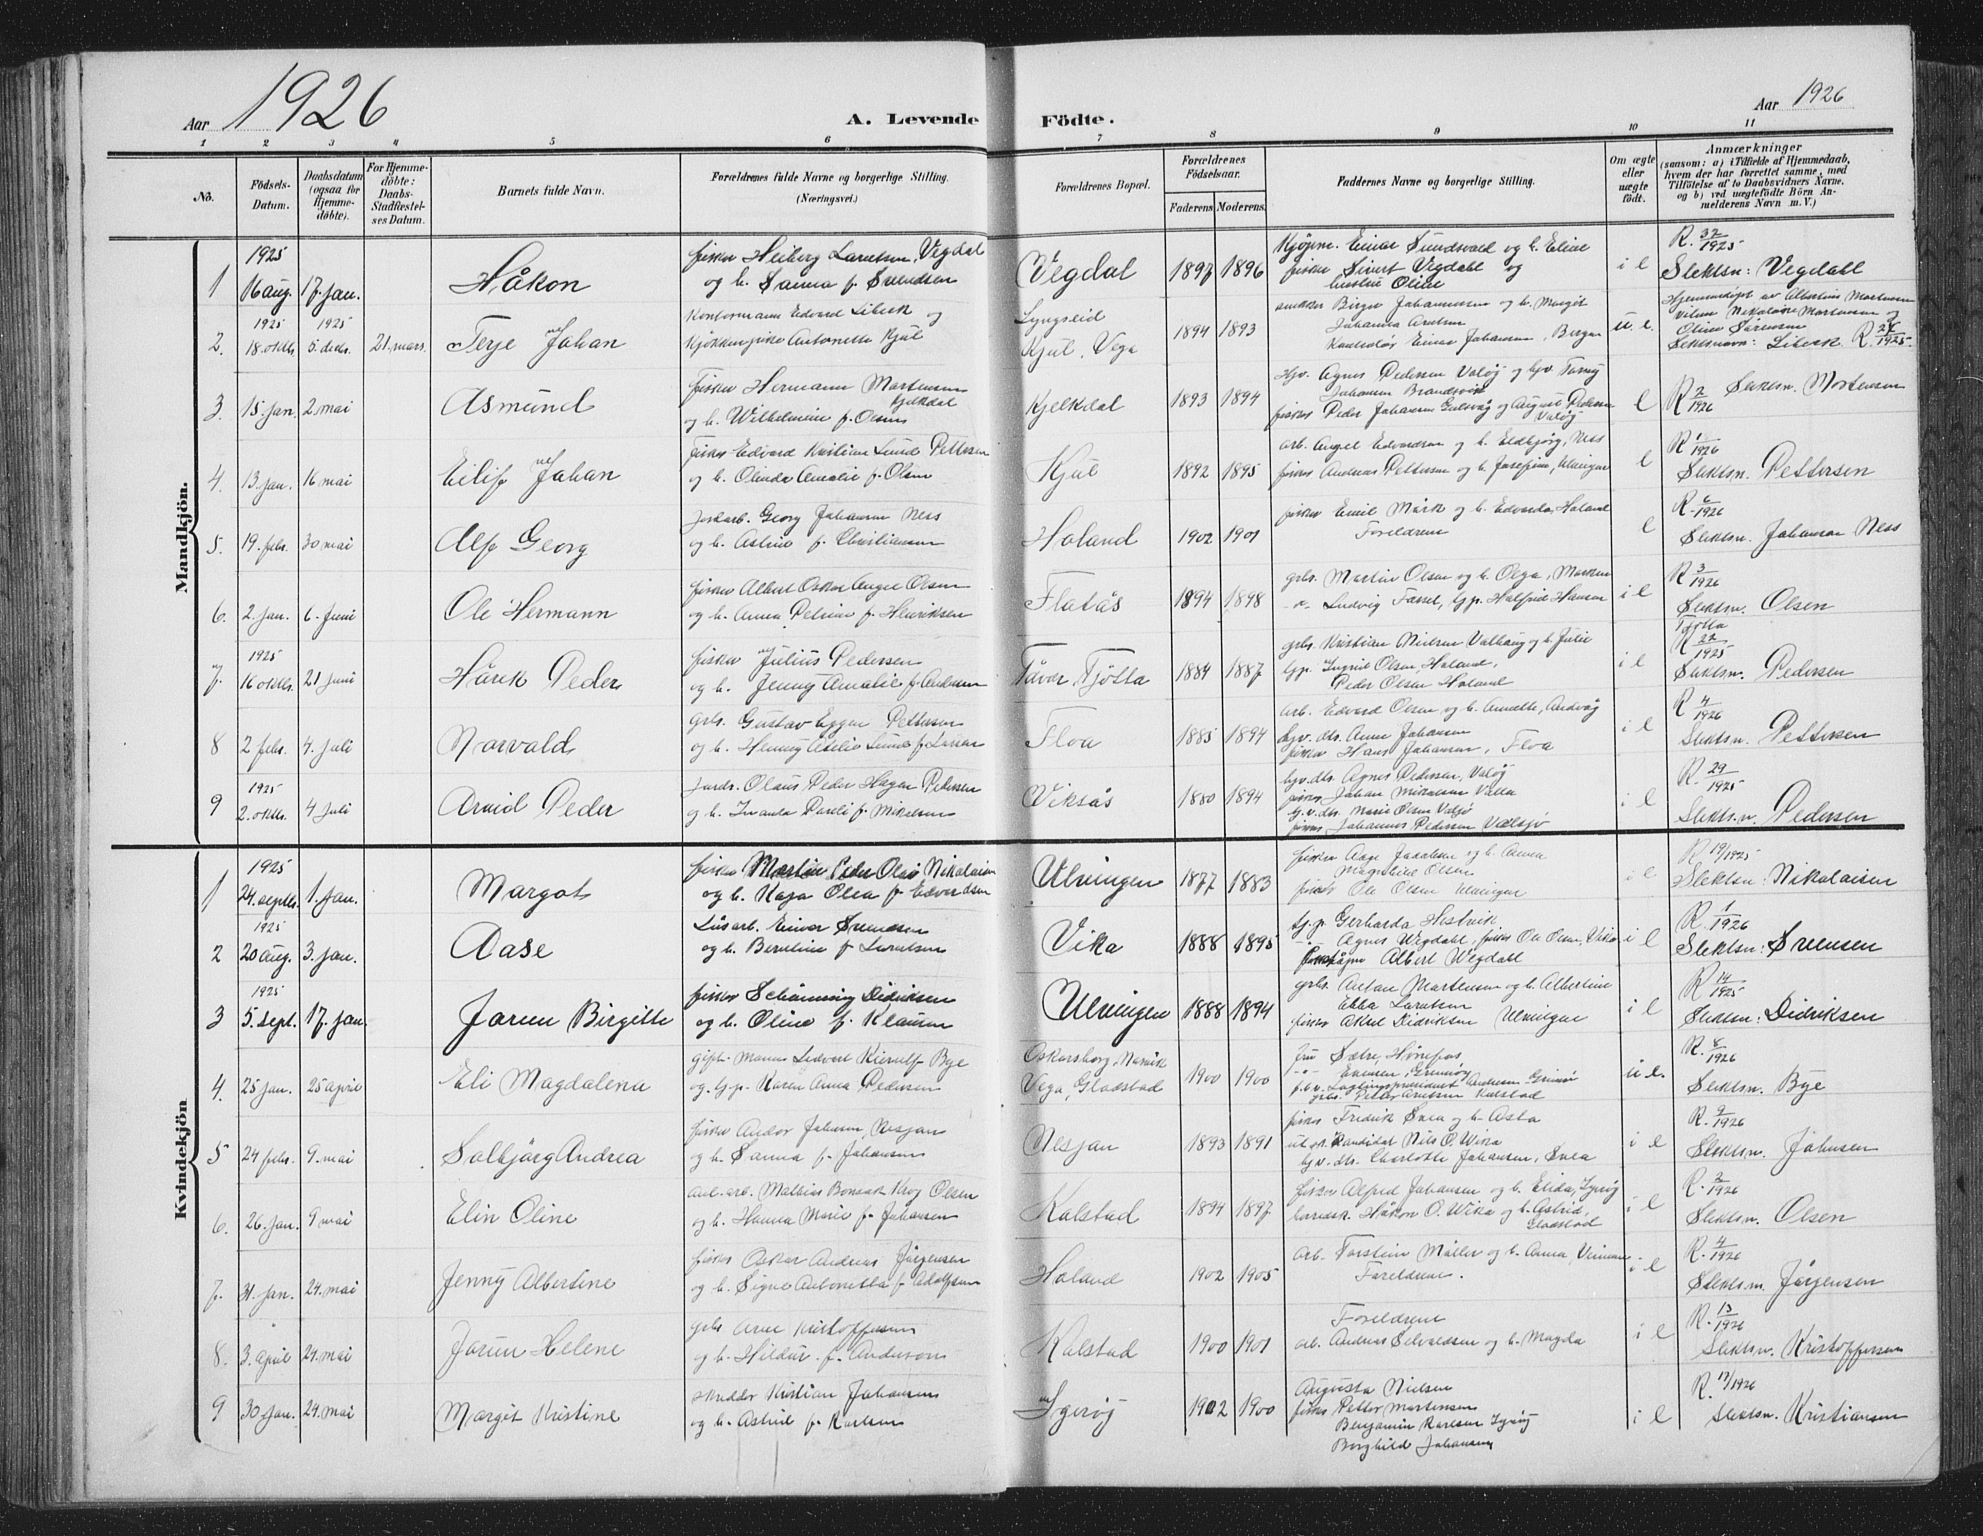 Aar 1926
A. Levende Födte.
Aar 1926
1 2 3 4 5 6 7 8 9 10 11
No.
Födsels-Datum.
Daabsdatum (ogsaa for Hjemme-döbte).
For Hjemme-döbte: Daabs-Stadfæstel-ses Datum.
Barnets fulde Navn.
Forældrenes fulde Navne og borgerlige Stilling. (Næringsvei.)
Forældrenes Bopæl.
Forældrenes Födselsaar.
Faderens Moderens.
Faddernes Navne og borgerlige Stilling.
Om ægte eller uægte födt.
Anmærkninger
(saasom: a) i Tilfælde af Hjemmedaab, hvem der har forrettet samme, med Tilföielse af to Daabsvidners Navne, og b) ved uægtefödte Börn An-melderens Navn m. V.)
Mandkjön.
1 1925 16 aug. 17. jan. Håkon
fisker Heiberg Laretsen Vegdal
og h. Sanna f. Svendsen
Vegdal 1897 1896
Einar Sundsvold og h. Eline
fisker Sivert Vegdahl og
hustru Oline
i e
R. 32/1925
Slektsn: Vegdahl
2. 1925 18. oktb. 1925 5. decbr. 21. mars. Terje Johan
Kontormann Edvard Libeck og
Antonette Kjul
Lyngseid
Kjul, Vega 1894 1893
snekker Birger Johannessen og h. Margit
Johanna Arntsen
Einar Johansen, Bergen
u. e.
Hjemmedøpt av Albertine Mortensen
Vitne Nikoline Mortensen og
Oline Sørensen
Slektsnavn: Libeck R. 24/1925.
3. 15. jan. 2. mai Asmund
fisker Hermann Mortensen
Kjelkdal
og h. Wilhelmine f. Olsen
Kjelkdal 1893 1894
Hjv. Agnes Pedersen Valøy og hjv. Fanny
Johansen Brandsvik
fisker Peder Johansen Gulsvåg og August Pedersen
Valøy
e
R 2/1926 Slektsn. Mortensen
4. 13. jan. 16 mai Eilif Johan
fisker Edvard Kristian Lund Pettersen
og h. Olinda Amalie f. Olsen
Kjul 1892 1895
arb. Angel Edvardsen og h. Eldbjørg, Ness
fisker Andreas Pettersen og h. Josefine, Ulvingen
e
R 1/1926
Slektsn. Pettersen
5. 19. febr. 30 mai Alf Georg
Jordarb. Georg Johansen Ness
og h. Astrid f. Christiansen
Holand 1902 1901
fisker Emil Mørk og h. Edvarda, Holand
Foreldrene
e
R. 6/1926
Slektsn. Johansen Ness
6. 2. jan. 6. juni Ole Hermann
fisker Albert Oskar Angel Olsen
og h. Anna Petrine f. Henriksen
Flatås 1894 1898
grbr. Martin Olsen og h. Olga, Marken
Ludvig Fasset, hjp. Halfrid Hansen
i e
R 3/1926
Slektsn. Olsen
7. 1925 16 oktb. 21 juni Hårek Peder
fisker Julius Pedersen
og h. Jenny Amalie f. Andersen
Tåvær, Tjøtta 1884 1887
grbr. Kristian Nielsen Valhaug og h. Julie
hjp. Ingrid Olsen Holand,
Peder Olsen Holand
i e
Tjøtta
R 22/1925
Slektsn. Pedersen
8 2 febr. 4. juli Norvald
grbr. Gustav Eggen Pettersen
og h. Henny Otelie Lund f. Larsen
Floa 1885 1894
arb. Edvard Olsen og h. Anette, Andvåg
hjv. dtr. Anne Johansen
fisker Hans Johansen, Floa
i e
R 4/1926
Slektsn. Pettersen
9 1925 2. oktb. 4 juli Arvid Peder
Jordr. Olaus Peder Hagen Pedersen
og h. Inanda Pareli f. Mikalsen
Viksås 1880 1894
hjv. dtr. Agnes Pedersen, Valøy
fisker Johan Mikalsen Valla
hjv. dtr. Marie Olsen Valsjø
fisker Johannes Pedersen Valsjø
i e
R. 29/1925
Slektsn. Pedersen
Kvindekjön
1 1925 24. septb. 1. jan. Margot
fisker Martin Peder Olai Nikolaisen
og h. Kaja Olea f. Edvardsen
Ulvingen 1877 1883
fisker Aage Jakobsen og h. Anna
Magdalene Olsen
fisker Ole Olsen Ulvingen
i e
R 19/1925
Slektsn: Nikolaisen
2 1925 20 aug. 3. jan. Aase
Løsarb. Einar Svendsen
og h. Berntine f. Laretsen
Vika 1888 1895
hj. p. Gerharda Hestvik
Agnes Wegdahl, fisker Ole Olsen, Vika
Albert Wegdahl
i e
R. 1/1926
Slektsn: Svensen
3 1925 5. sept. 17. jan. Jorun Birgitte
fisker Schønning Didriksen
og h. Oline f. Klausen
Ulvingen 1888 1894
grbr. Anton Mortensen og h. Albertine
Ebba Laretsen
fisker Aksel Didriksen Ulvingen
i e
R 14/1925
Slektsn: Didriksen
4. 25 jan. 25 april Eli Magdalena
Ledvart Kierulf Bye
og hjp. Karen Anna Pedersen
Oskarsborg, Narvik
Vega, Gladstad 1900 1900
fru Sætre, Hønefos
Evensen, Grimsøy
Lagtingspresident Andersen Grimsø
grbr. Petter Arntsen Kalstad
u e.
R. 8/1926
Slektsn. Bye
5 24 febr. 9. mai Solbjørg Andrea
fisker Andor Johansen, Nesjan
og h. Sanna f. Johansen
Nesjan 1893 1891
fisker Fredrik Svea og h. Asta
Kandidat Nils O. Wika
hjv. dtr. Charlotte Johansen, Svea
i e
R. 9/1926
Slektsn. Johansen
6. 26. jan. 9 mai Elin Oline
Anl. arb. Mathias Bonsak Krog Olsen
og h. Hanna Marie f. Johansen
Kalstad 1894 1897
fisker Alfred Johansen og h. Elida, Igerøy
Håkon O. Wika og h. Astrid,
Gladstad
i e
R. 2/1926
Slektsn. Olsen
7. 31. jan. 24. mai Jenny Albertine
fisker Oskar Andreas Jørgensen
og h. Signe Antonetta f. Adolfsen
Holand 1902 1905
arb. Torstein Møller og h. Anna,
Foreldrene.
i e
R. 4/1926
Slektsn. Jørgensen
8. 3. april 24. mai Jorun Helene
grbr. Arne Kristoffersen
og h. Hildur f. Anderson
Kalstad 1900 1901
Foreldrene
arb. Andreas Edvardsen og h. Magda
i e
R. 13/1926
Slektsn. Kristoffersen
9 30 jan. 24. mai Margit Kristine
skredder Kristian Johansen
og h. Astrid f. Karlsen
Igerøy 1902 1900
Augusta Nielsen
fisker Petter Mortensen
Benjamin Karlsen Igerøy
Borghild Johansen
i e
R. 17/1926
Slektsn. Kristiansen